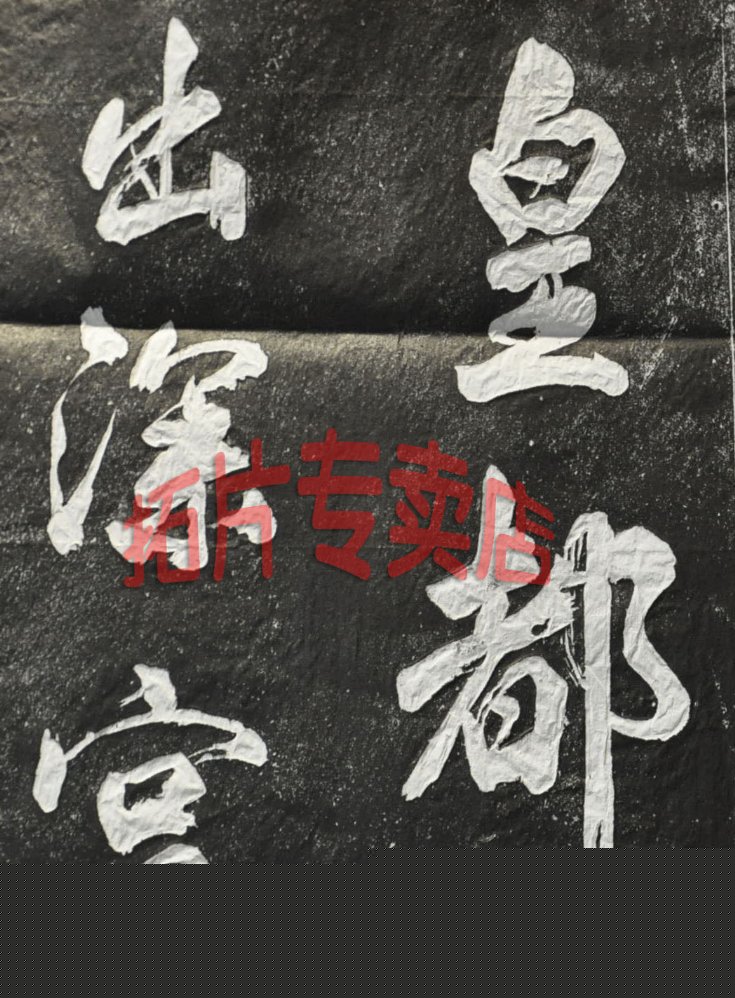 皇都
出深宫
拓片专卖店